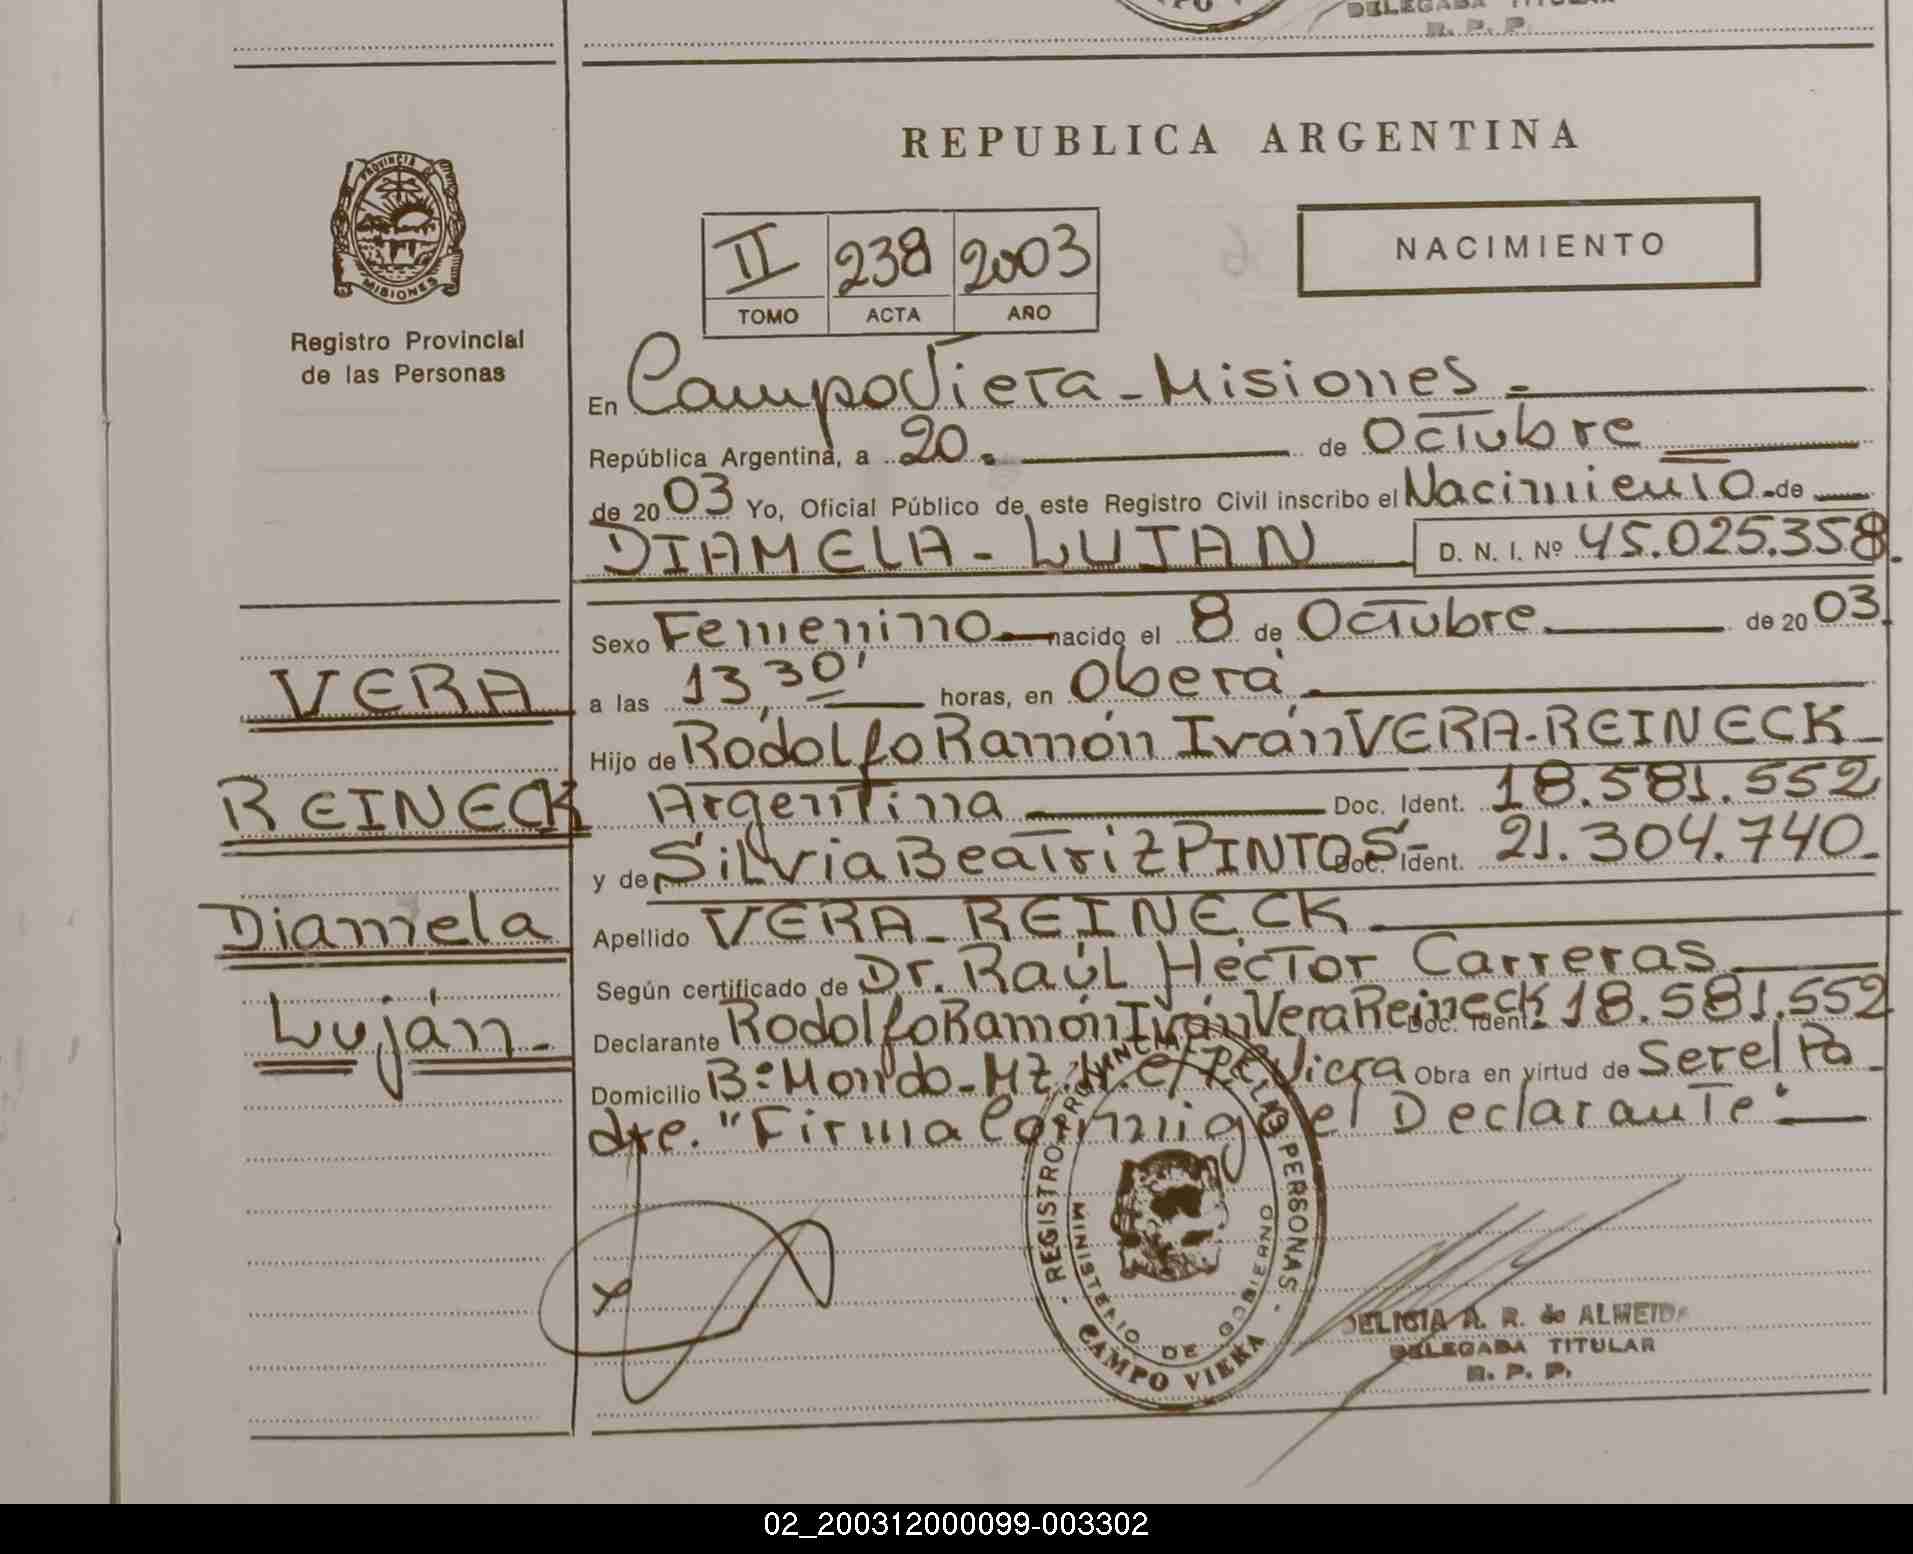 DELEGADA TITULAR
R. P. P.
REPUBLICA ARGENTINA
PROVINCIA DE
MISIONES
Registro Provincial
de las Personas
II 238 2003
TOMO ACTA AÑO
NACIMIENTO
En Campo Viera - Misiones -
República Argentina, a 20. de Octubre
de 2003 Yo, Oficial Público de este Registro Civil inscribo el Nacimiento de
DIAMELA - LUJAN D. N. I. Nº 45.025.358.
Sexo Femenino nacido el 8 de Octubre de 2003.
VERA
a las 13,30' horas, en Oberá
Hijo de Rodolfo Ramón Iván VERA-REINECK
REINECK
Argentina Doc. Ident. 18.581.552
y de Silvia Beatriz PINTOS- Doc. Ident. 21.304.740
Diamela
Apellido VERA - REINECK
Según certificado de Dr. Raúl Héctor Carreras
Luján.
Declarante Rodolfo Ramón Iván Vera Reineck Doc. Ident. 18.581.552
Domicilio Bº Mondo - Mz. Viera Obra en virtud de Ser el Pa
dre. "Firma Conmigo el Declarante".
REGISTRO PROVINCIAL DE LAS PERSONAS
MINISTERIO DE GOBIERNO
CAMPO VIERA
DELICIA A. R. de ALMEIDA
DELEGADA TITULAR
R. P. P.
02_200312000099-003302